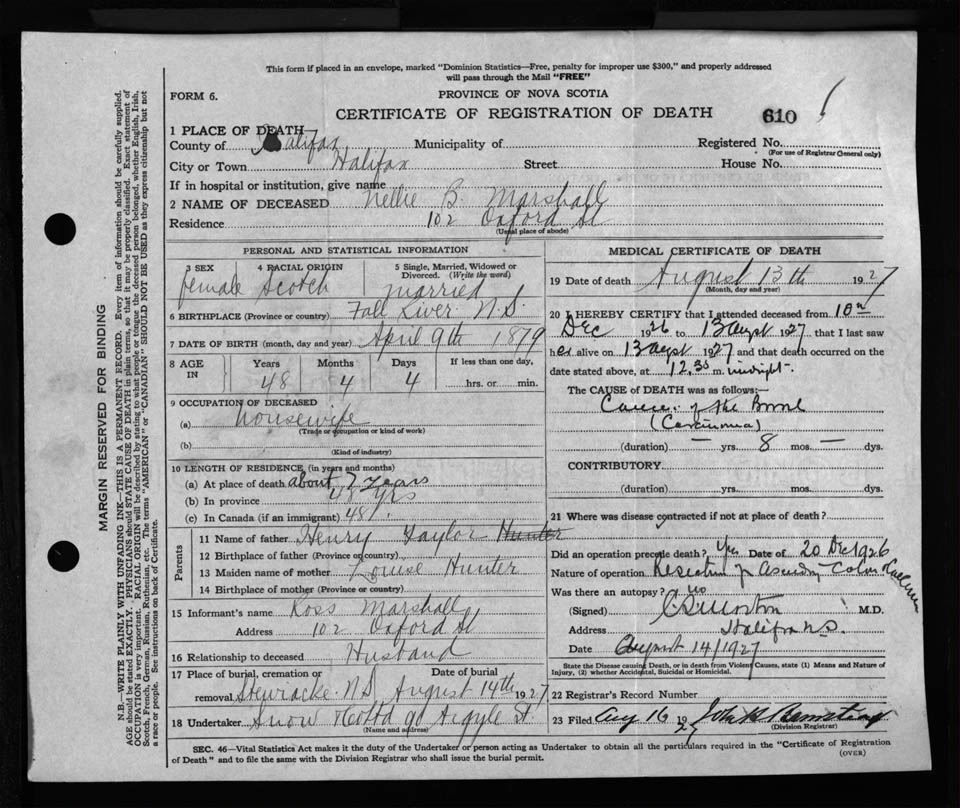 This form if placed in an envelope, marked "Dominion Statistics—Free, penalty for improper use $300," and properly addressed
will pass through the Mail "FREE"
FORM 6.
PROVINCE OF NOVA SCOTIA
CERTIFICATE OF REGISTRATION OF DEATH
610
1 PLACE OF DEATH
County of Halifax Municipality of Registered No.
(For use of Registrar General only)
City or Town Halifax Street House No.
If in hospital or institution, give name
2 NAME OF DECEASED Nellie B. Marshall
Residence 102 Oxford St
(Usual place of abode)
PERSONAL AND STATISTICAL INFORMATION
3 SEX 4 RACIAL ORIGIN 5 Single, Married, Widowed or Divorced. (Write the word)
female Scotch married
6 BIRTHPLACE (Province or country) Fall River N.S.
7 DATE OF BIRTH (month, day and year) April 9th 1879
8 AGE IN Years Months Days If less than one day,
48 4 4 hrs. or min.
9 OCCUPATION OF DECEASED
(a) housewife
(Trade or occupation or kind of work)
(b)
(Kind of industry)
10 LENGTH OF RESIDENCE (in years and months)
(a) At place of death about 7 years
(b) In province 48 yrs
(c) In Canada (if an immigrant) 48
Parents
11 Name of father Henry Taylor Hunter
12 Birthplace of father (Province or country)
13 Maiden name of mother Louise Hunter
14 Birthplace of mother (Province or country)
15 Informant's name Ross Marshall
Address 102 Oxford St
16 Relationship to deceased Husband
17 Place of burial, cremation or Date of burial
removal Stewiacke N.S. August 14th 1927
18 Undertaker Snow & Co Ltd 90 Argyle St.
(Name and address)
MEDICAL CERTIFICATE OF DEATH
19 Date of death August 13th 1927
(Month, day and year)
20 I HEREBY CERTIFY that I attended deceased from 10th
Dec 1926 to 13 Augst 1927 that I last saw
her alive on 13 augst 1927 and that death occurred on the
date stated above, at 12.30 m. midnight.
The CAUSE of DEATH was as follows:—
Cancer of the Bowel
(Carcinoma)
(duration) — yrs. 8 mos. — dys.
CONTRIBUTORY
(duration) yrs. mos. dys.
21 Where was disease contracted if not at place of death?
Did an operation precede death? Yes Date of 20 Dec 1926
Nature of operation Resection of Ascending Colon
Was there an autopsy? no
(Signed) C S Morton M.D.
Address Halifax N.S.
Date August 14/1927
State the Disease causing Death, or in death from Violent Causes, state (1) Means and Nature of
Injury, (2) whether Accidental, Suicidal or Homicidal.
22 Registrar's Record Number
23 Filed Aug 16 1927 John
(Division Registrar)
SEC. 46—Vital Statistics Act makes it the duty of the Undertaker or person acting as Undertaker to obtain all the particulars required in the "Certificate of Registration
of Death" and to file the same with the Division Registrar who shall issue the burial permit.
(OVER)
MARGIN RESERVED FOR BINDING
N.B.—WRITE PLAINLY WITH UNFADING INK—THIS IS A PERMANENT RECORD. Every item of information should be carefully supplied.
AGE should be stated EXACTLY. PHYSICIANS should STATE CAUSE OF DEATH in plain terms, so that it may be properly classified. Exact statement of
OCCUPATION is very important. RACIAL ORIGIN will be described by stating to what people or tongue the deceased person belonged, whether English, Irish,
Scotch, French, German, Russian, Ruthenian, etc. The terms "AMERICAN" or "CANADIAN" SHOULD NOT BE USED as they express citizenship but not
a race or people. See instructions on back of Certificate.